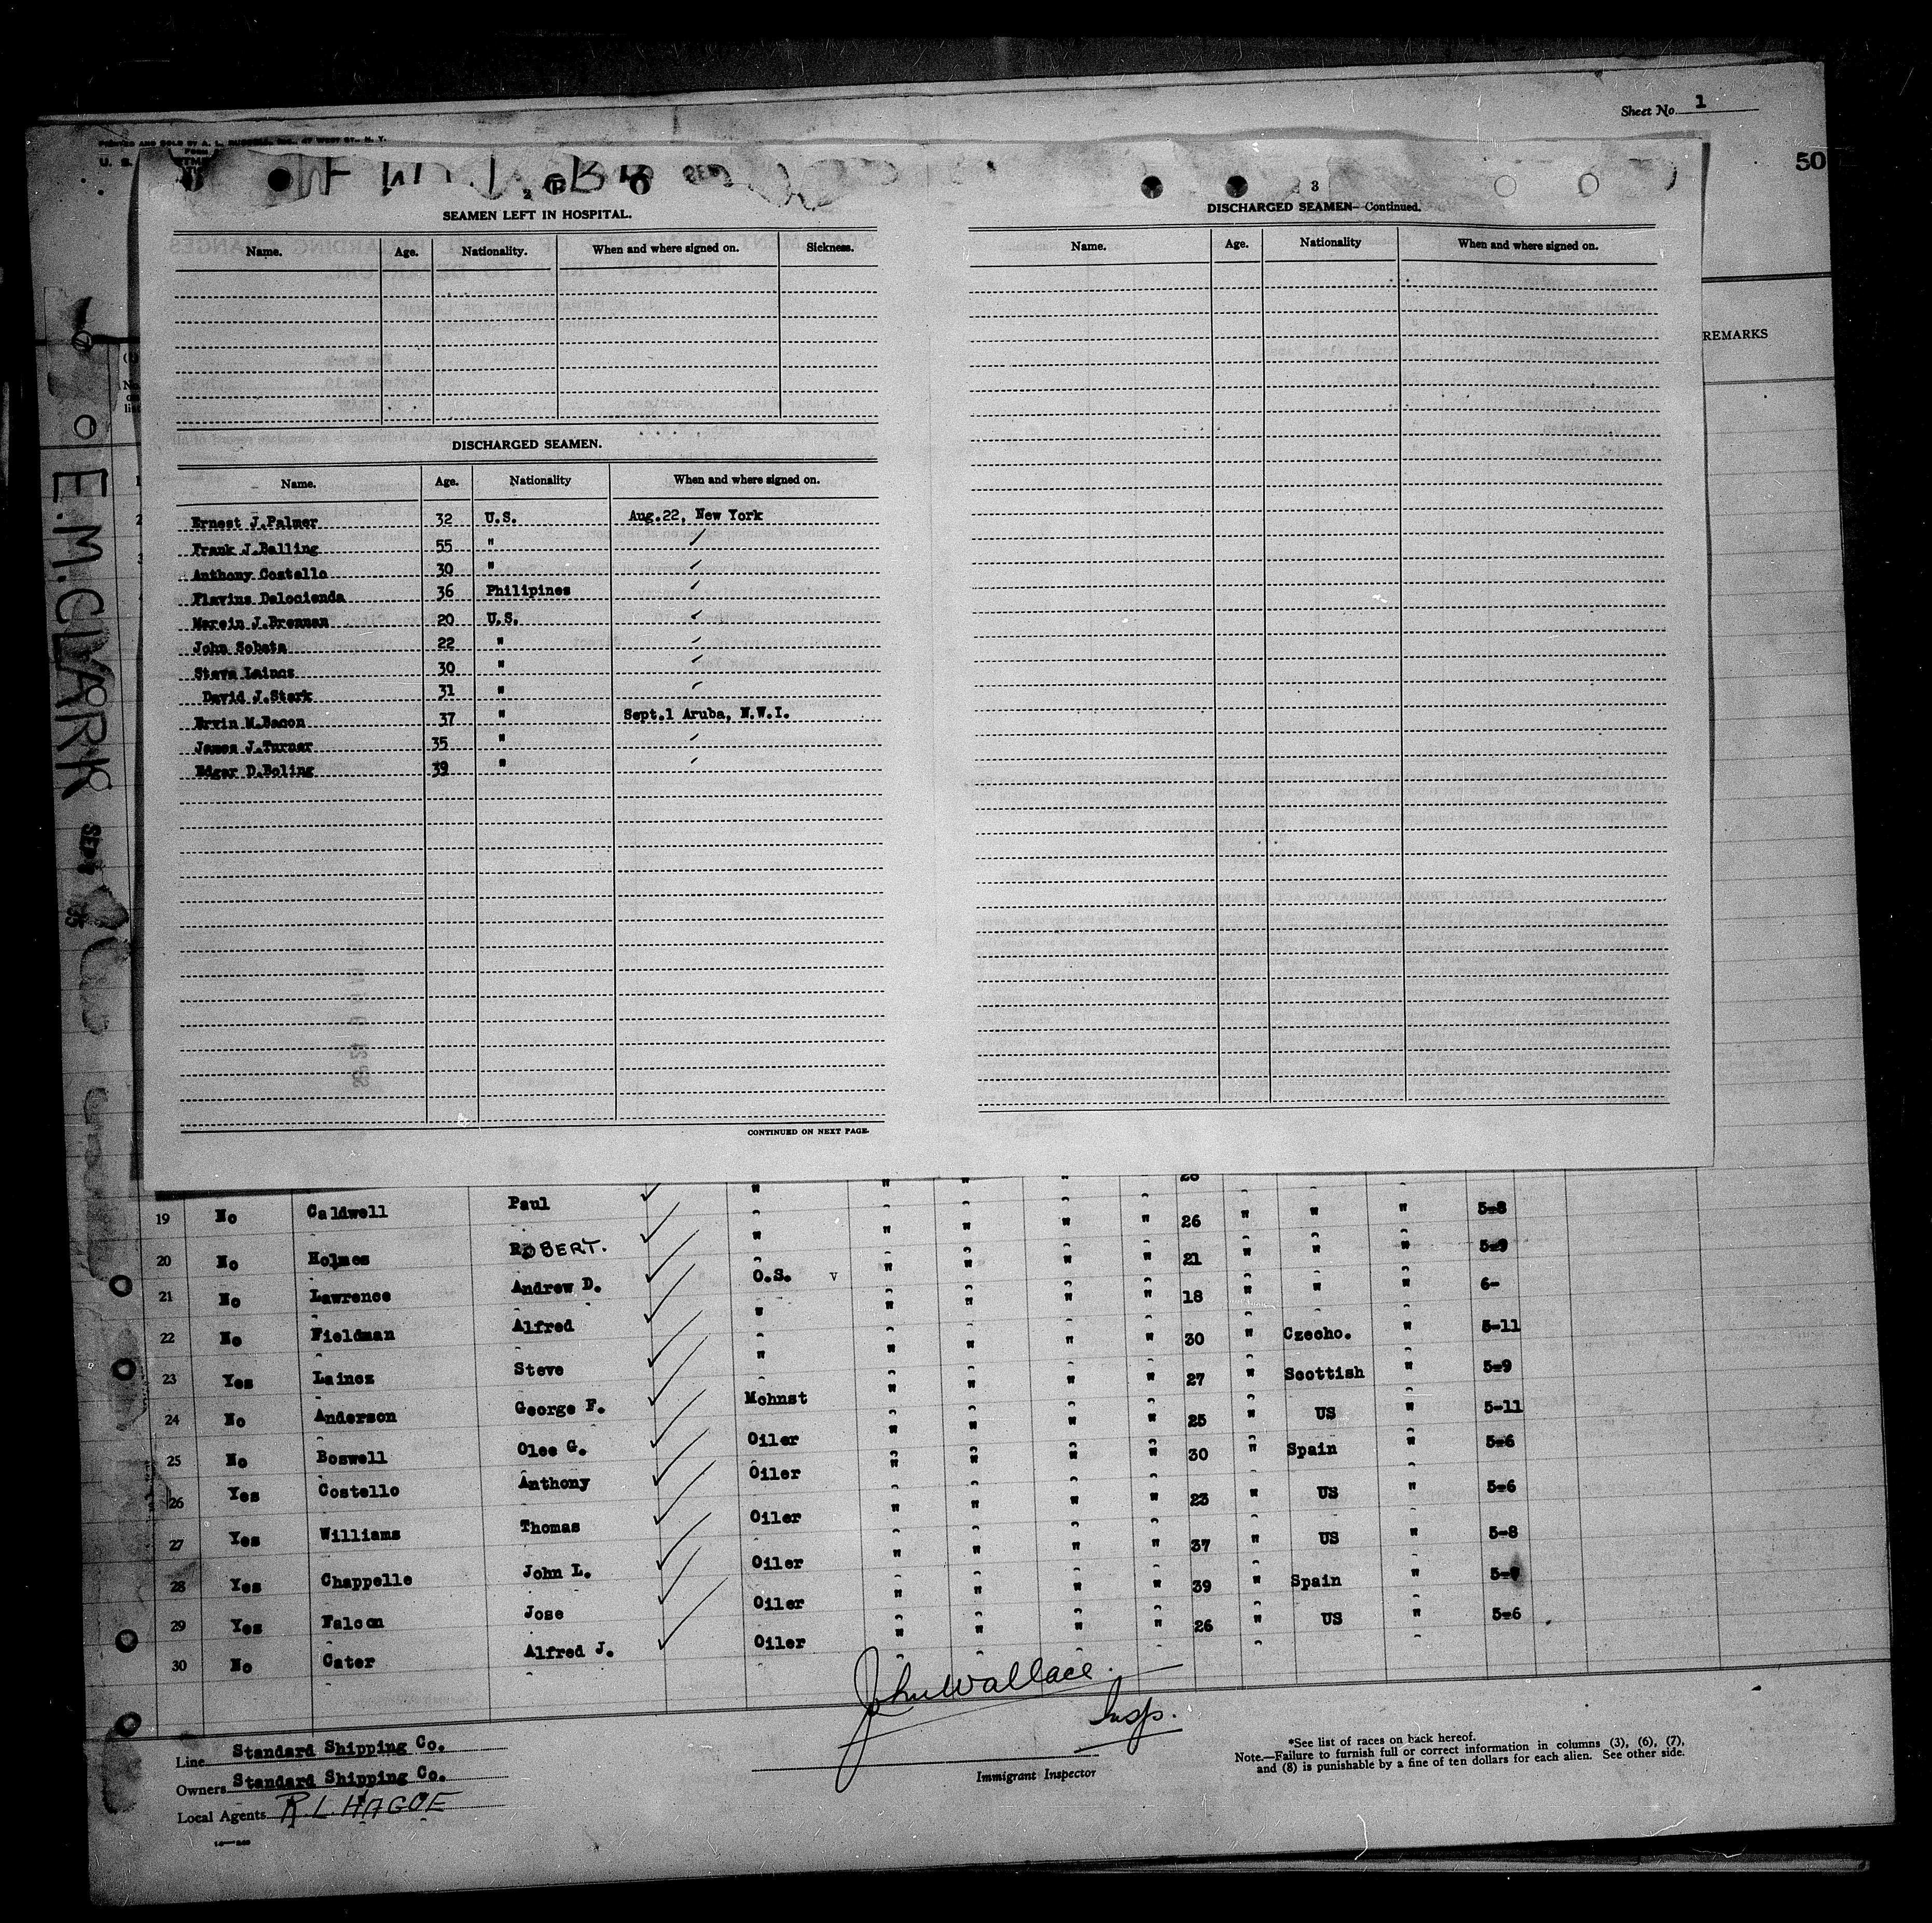 Sheet No. 1
PRINTED AND SOLD BY A. L. RUSSELL, INC., 47 WEST ST., N. Y.
FORM
U. S.
50
2
SEAMEN LEFT IN HOSPITAL.
Name. Age. Nationality. When and where signed on. Sickness.
DISCHARGED SEAMEN.
Name. Age. Nationality When and where signed on.
Ernest J.Palmer 32 U.S. Aug.22, New York
Frank J.Balling 55 "
Anthony Costello 30 "
Flavins Dalocienda 36 Philipines
Marein J.Brennan 20 U.S.
John Sobota 22 "
Steve Lainos 30 "
David J.Stark 31 "
Ervin M.Bacon 37 " Sept.1 Aruba, N.W.I.
James J.Turner 35 "
Edgar D.Boling 39 "
CONTINUED ON NEXT PAGE.
3
DISCHARGED SEAMEN—Continued.
Name. Age. Nationality When and where signed on.
REMARKS
E.M.CLARK
28
19 No Caldwell Paul " " " " " 26 " " " 5-8
20 No Holmes ROBERT. " " " " " 21 " " " 5-9
21 No Lawrence Andrew D. O.S. v " " " " 18 " " " 6-
22 No Fieldman Alfred " " " " " 30 " Czecho. " 5-11
23 Yes Lainos Steve " " " " " 27 " Scottish " 5-9
24 No Anderson George F. Mchnst " " " " 25 " US " 5-11
25 No Boswell Olee G. Oiler " " " " 30 " Spain " 5-6
26 Yes Costello Anthony Oiler " " " " 23 " US " 5-6
27 Yes Williams Thomas Oiler " " " " 37 " US " 5-8
28 Yes Chappelle John L. Oiler " " " " 39 " Spain "
29 Yes Falcon Jose Oiler " " " " 26 " US " 5-6
30 No Cater Alfred J. Oiler
John Wallace
Insp.
Immigrant Inspector
Line Standard Shipping Co.
Owners Standard Shipping Co.
Local Agents R.L.HAGUE
*See list of races on back hereof.
Note.—Failure to furnish full or correct information in columns (3), (6), (7),
and (8) is punishable by a fine of ten dollars for each alien. See other side.